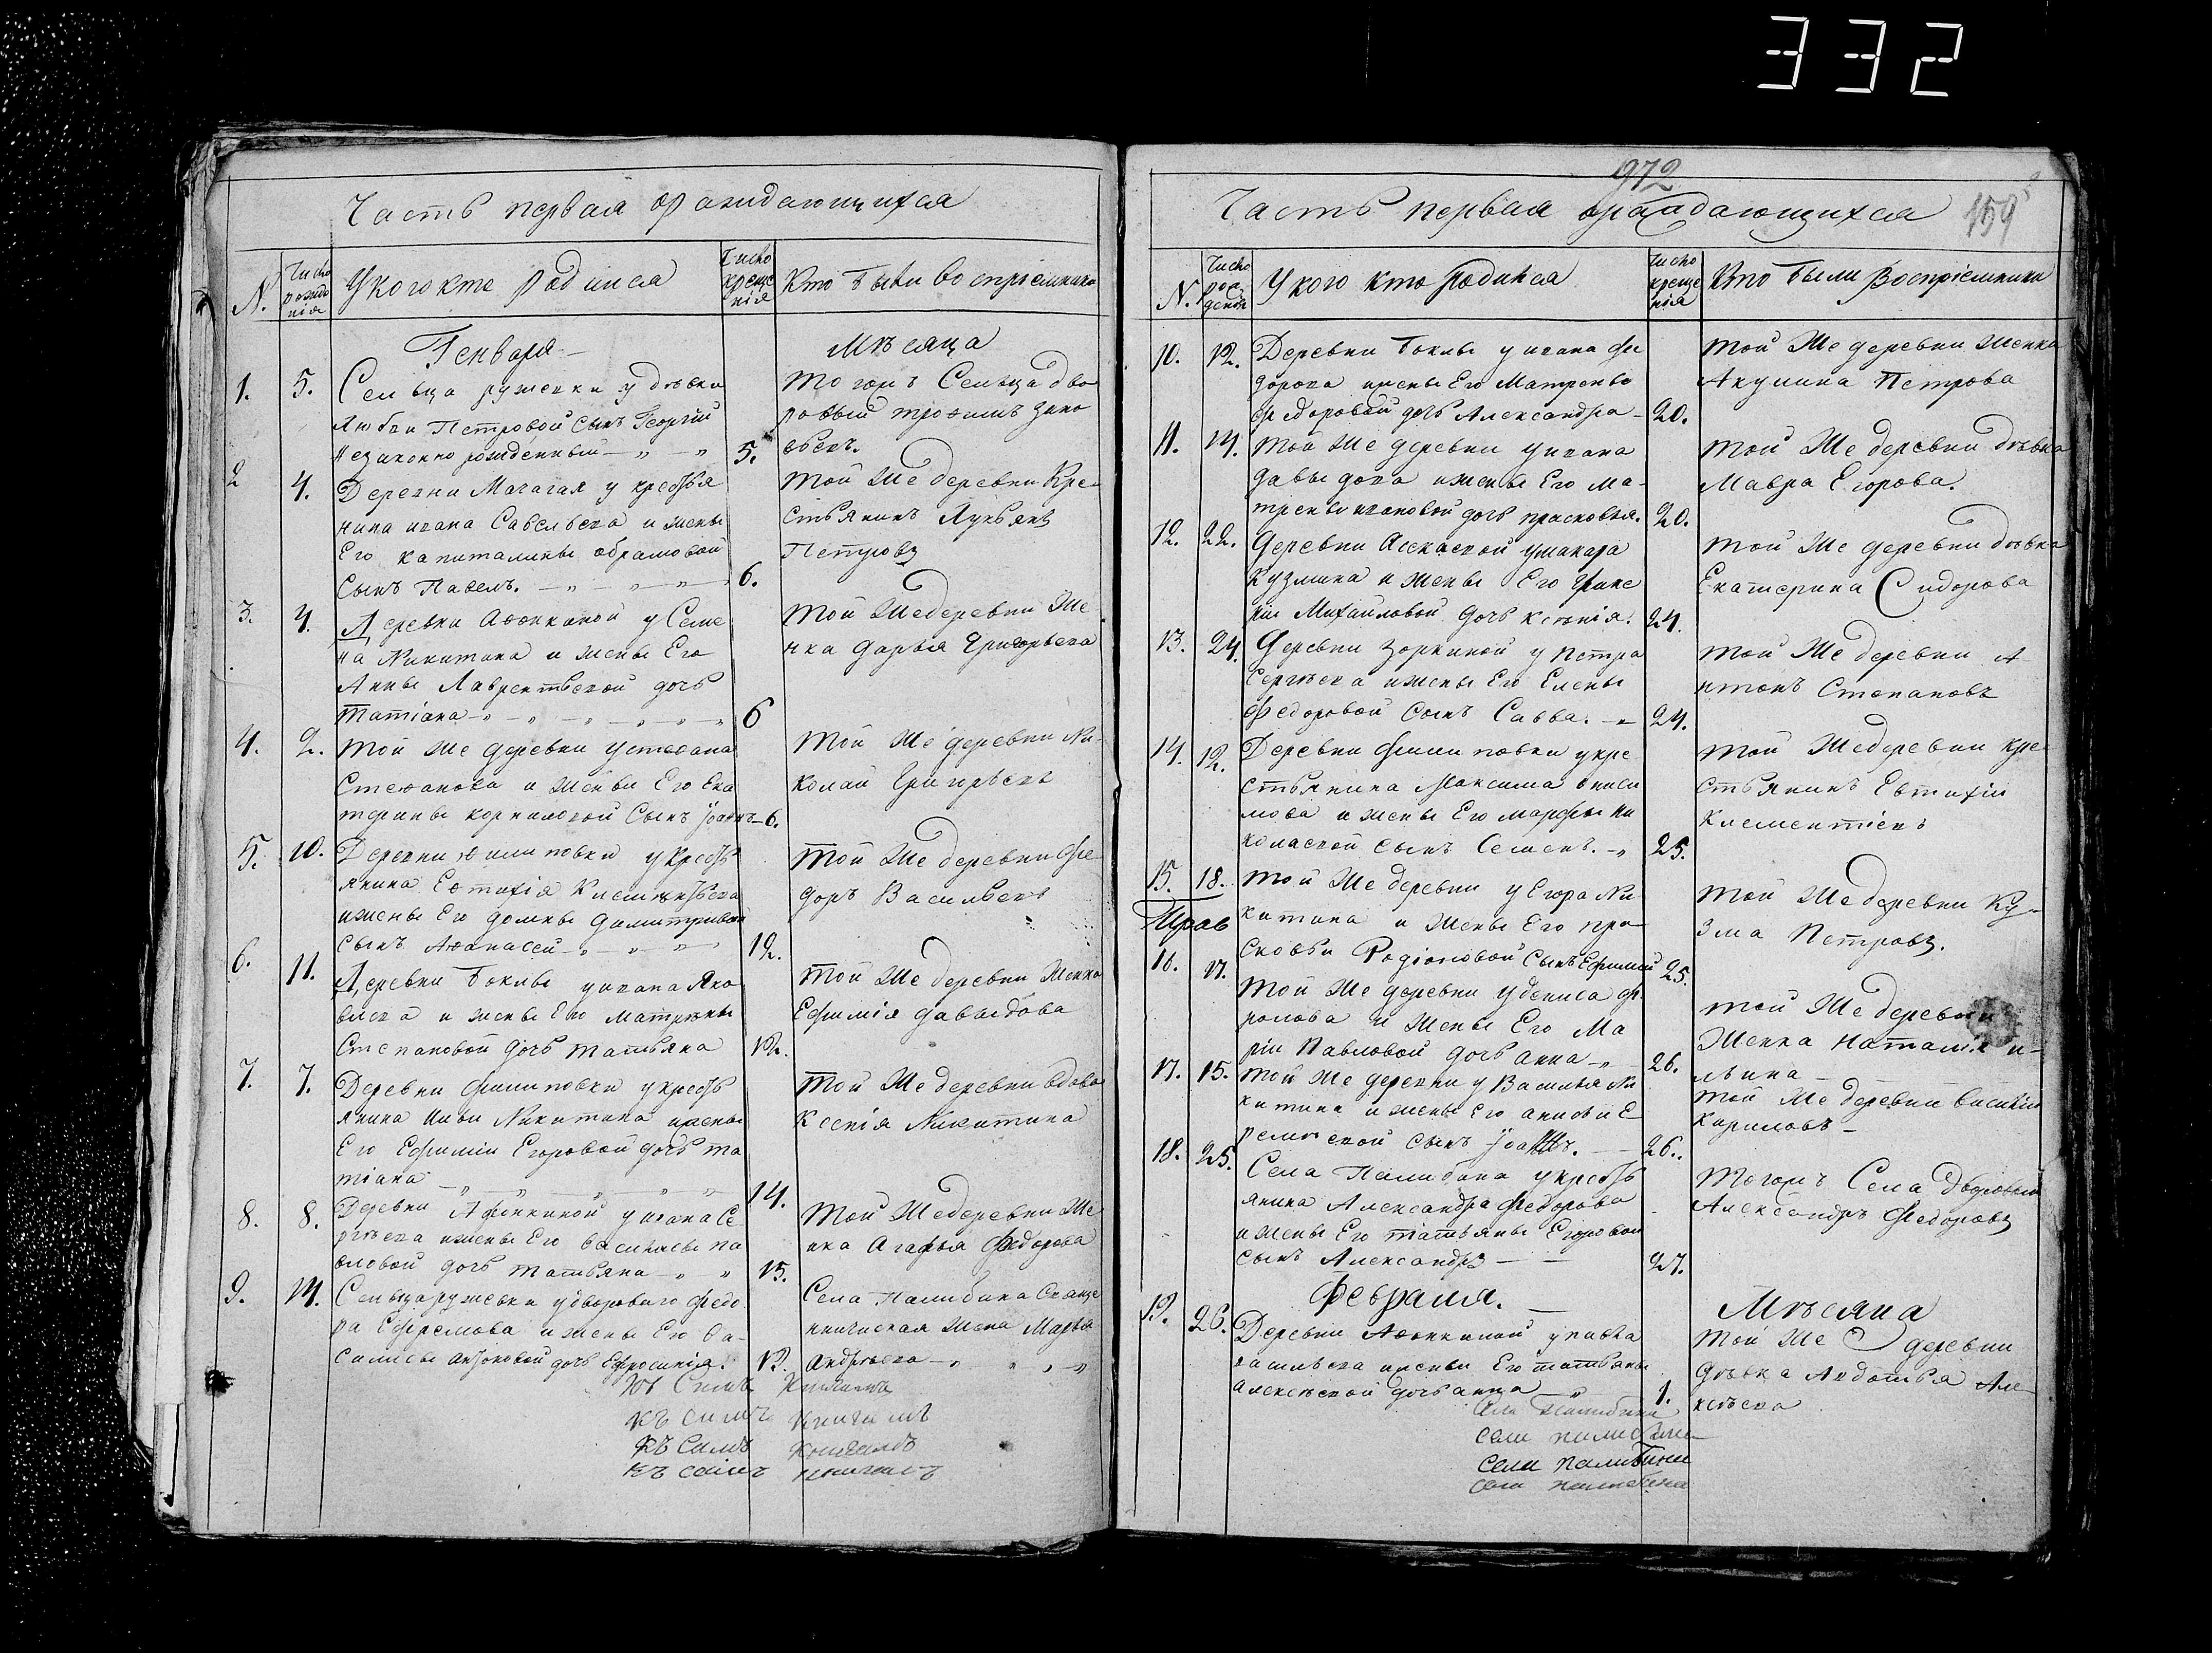 332
Часть первая о раждающихся
N.
Число рожденія
У кого кто родился
Число крещенія
Кто были воспріемники
Генваря
Мѣсяца
1. 5. Сельца ружевки у дѣвки
Любви Петровой сынъ Георгій
незаконно рожденный 5.
Тогожъ Сельца дво
ровый трофимъ Яко
влевъ.
2 4. Деревни Мачагая у крестья
нина ивана Савельева и жены
Его капиталины абрамовой
Сынъ Павелъ. 6.
Той Же деревни Кре
стьянинъ Лукьянъ
Петровъ
3. 4. Деревни Афонкиной у Семе
на Никитина и жены Его
Анны Лаврентьевой дочь
Татіана 6
Той Же деревни Же
нка Дарья Григорьева
4. 2. Той же деревни у стефана
Стефанова и Жены Его Ека
терины корниловой Сынъ Іоаннъ 6.
Той Же деревни Ни
колай Григорьевъ
5. 10. Деревни филиповки у Кресть
янина Евтихія Клементьева
и жены Его домны димитривой
сынъ Афанасей 12.
Той Же деревни Фе
доръ Васильевъ
6. 11. Деревни Боклы у ивана Яко
влева и жены Его матрены
Степановой дочь татьяна 12.
Той Же деревни Женка
Ефимія давыдова
7. 7. Деревни филиповки у кресть
янина Ильи Никитина и жены
Его Ефиміи Егоровой дочь та
тіана 14.
Той Же деревни вдова
Ксенія Никитина
8. 8. Деревни Афонкиной у ивана Се
ргѣева и жены Его василисы па
вловой дочь татьяна 15.
Той Же деревни Же
нка Агафья Федорова
9. 14. Сельца ружевки у двороваго Федо
ра Ефремова и жены Его Ва
силисы антоновой дочь Ефросинія.
Села Палибина Священ
ническая Жена Марья
Андрѣева
Къ Симъ Книгамъ
Къ симъ Книгамъ
Къ Симъ Книгамъ
Къ симъ книгамъ
972
159
Часть первая о раждающихся
N.
Число рожденія
У кого кто Родился
Число крещенія
Кто были Воспріемники
10. 12. Деревни Боклы у ивана Фе
дорова и жены Его Матрены
Федоровой дочь Александра 20.
Той Же деревни женка
Акулина Петрова
11. 14. Той Же деревни у ивана
давыдова и жены Его Ма
трены ивановой дочь прасковья. 20.
Той Же деревни дѣвка
Мавра Егорова.
12. 22. Деревни у макара
Кузмина и жены Его
Михайловой дочь ксенія. 24.
Той Же деревни дѣвка
Екатерина Сидорова
13. 24. Деревни Зоркиной у Петра
Сергѣева и жены Его Елены
Федоровой сынъ Савва. 24.
Той Же деревни А
нтонъ Степановъ
14. 12. Деревни Филиповки у кре
стьянина Максима аниси
мова и жены Его марфы Ни
колаевой сынъ Семенъ. 25.
Той Же деревни кре
стьянинъ Евтихій
Клементіевъ
15. 18. Той Же деревни у Егора Ни
китина и Жены Его пра
сковьи Родіоновой сынъ Ефимій 25.
Той Же деревни Ку
зма Петровъ.
16. 17. Той Же деревни у дениса Фр
ролова и жены Его Ма
ріи Павловой дочь анна 26.
Той Же деревни
Женка Наталія и
льина
17. 15. Той Же деревни у Василья Ни
китина и жены Его анисьи Е
ремѣевой сынъ Іоаннъ. 26.
Той Же деревни Василій
Кириловъ
18. 25. Села Палибина у кресть
янина Александра Федорова
и жены Его татьяны Егоровой
сынъ Александръ 27.
Тогожъ Села дворовый
Александръ Федоровъ
Февраля.
Мѣсяца
19. 26. Деревни Афонкиной у павла
васильева и жены Его татьяны
алексѣевой дочь анна 1.
Той Же деревни
дѣвка Авдотья Але
ксѣева
села палибина
села палибина
села палибина
села палибина